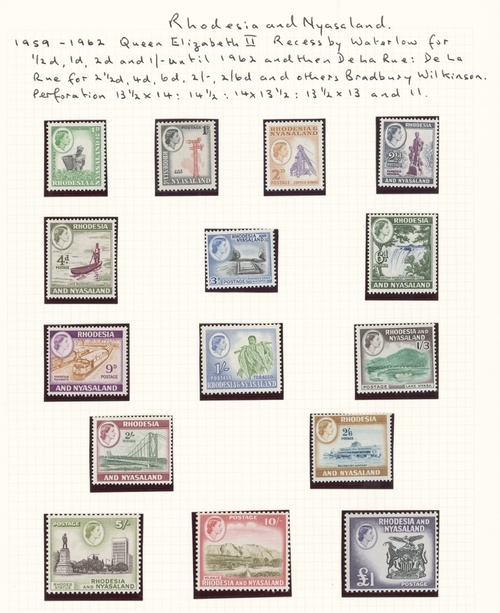 Rhodesia and Nyasaland.
1959-1962 Queen Elizabeth II Recess by Waterlow for
1/2d, 1d, 2d and 1/- until 1962 and then De La Rue: De La
Rue for 2 1/2d, 4d, 6d, 2/-, 2/6d and others Bradbury Wilkinson.
Perforation 13 1/2 x 14: 14 1/2: 14 x 13 1/2: 13 1/2 x 13 and 11.
RHODESIA &
1D
NYASALAND
RHODESIA &
NYASALAND
2D
POSTAGE
RHODESIA
2½D
AND NYASALAND
RHODESIA
4d
POSTAGE
AND NYASALAND
RHODESIA AND
NYASALAND
3D
POSTAGE
RHODESIA
6D
AND NYASALAND
RHODESIA
9D
AND NYASALAND
1/-
POSTAGE TOBACCO
RHODESIA & NYASALAND
RHODESIA AND
NYASALAND
1/3
POSTAGE LAKE NYASA
RHODESIA
2/-
POSTAGE
AND NYASALAND
RHODESIA
2/6
POSTAGE
AND NYASALAND
POSTAGE 5/-
RHODES STATUE
RHODESIA AND NYASALAND
POSTAGE 10/-
MLANJE
RHODESIA AND NYASALAND
RHODESIA AND
NYASALAND
£1
POSTAGE